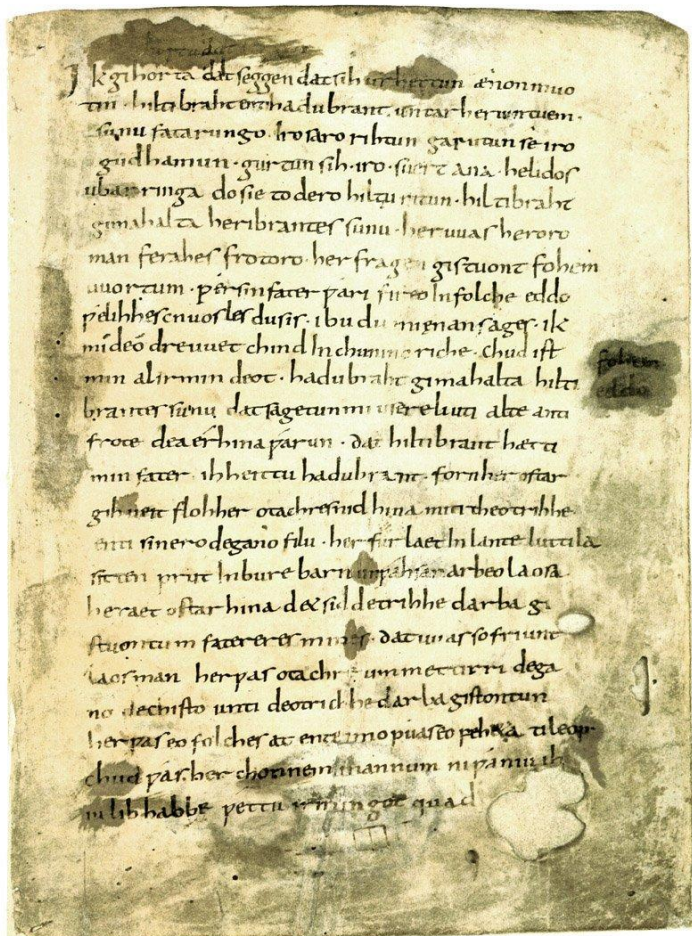 Ik gihorta đat seggen đat sih urhettun ænon muo
tin · hiltibraht enti hađubrant · untar heriun tuem ·
sunu fatarungo · iro saro rihtun garutun se iro
guđhamun · gurtun sih · iro · suert ana · helidos
ubar ringa do sie to dero hiltu ritun · hiltibraht
gimahalta heribrantes sunu · her uuas heroro
man ferahes frotoro · her fragen gistuont fohem
uuortum · ƿer sin fater ƿari fireo In folche eddo
ƿelihhes cnuosles du sis · ibu du mi enan sages · ik
mi deo dre uuet chind In chuninc riche · chud ist
min al irmin deot · hadubraht gimahalta hilti
brantes sunu dat sagetun mi usere liuti alte anti
frote dea érhina ƿarun · dat hiltibrant hætti
min fater · ih heittu hadubrant · forn her ostar
gihueit floh her otachres nid hina miti theotrihhe
enti sinero degano filu · her fur laet In lante luttila
sitten prut In bure barn unƿahsan arbeo laosa
heraet ostar hina d& sid detrihhe darba gi
stuontum fatereres mines · dat uuas so friunt
laos man her ƿas otachre ummet tirri dega
no dechisto unti deotrichhe darba gistontun
her ƿas eo folches at ente imo ƿuas eo ƿeh&a ti leop
chud ƿas her chonnem mannum ni ƿaniu ih
iu lib habbe ƿettu irmingot quad
fohem
eddo